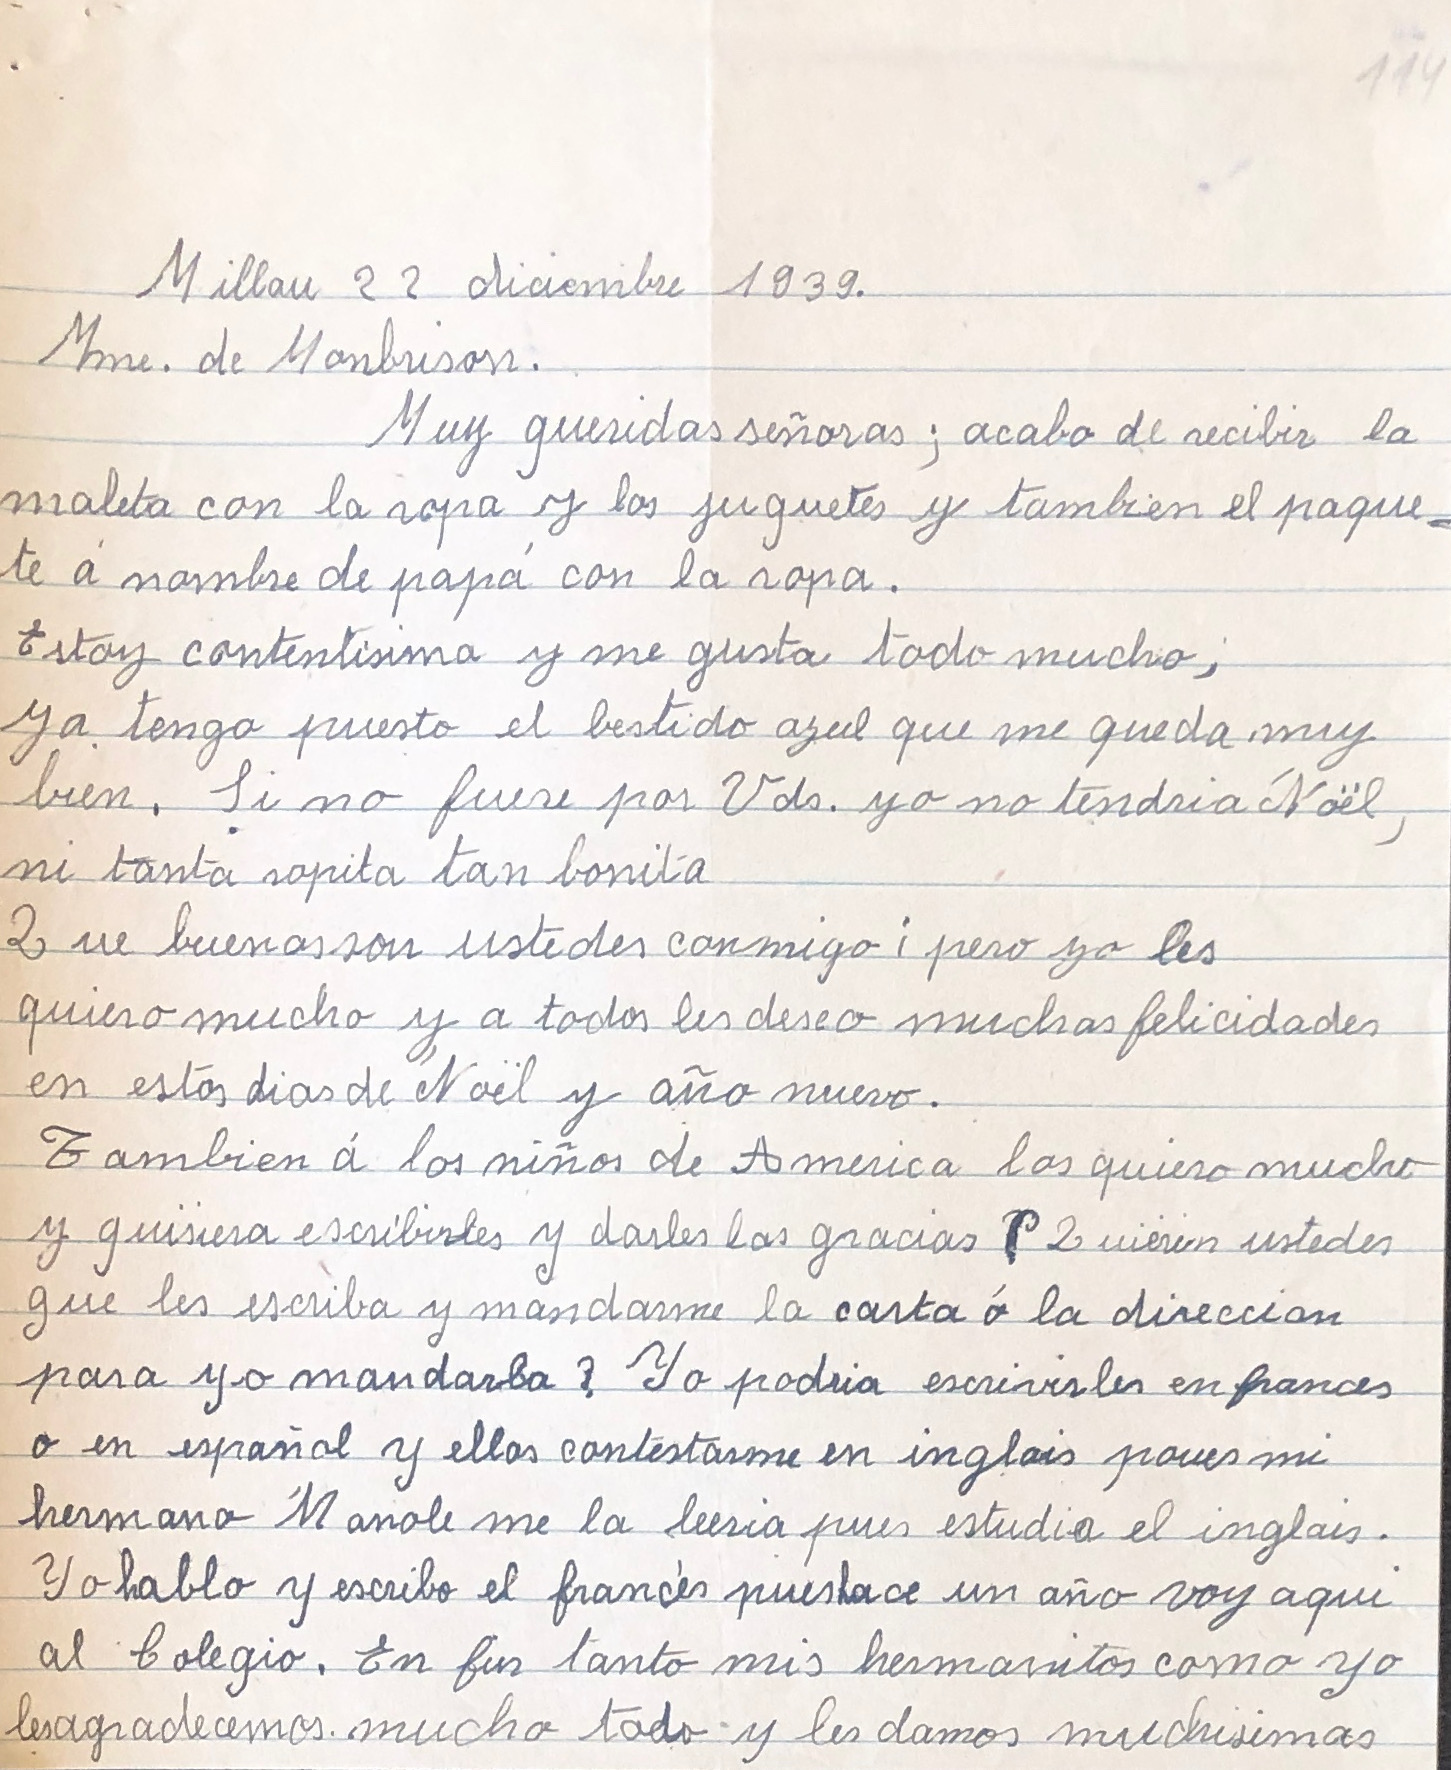 114
Millau 22 diciembre 1939.
Mme. de Monbrison.
Muy queridas señoras; acabo de recibir la
maleta con la ropa y los juguetes y tambien el paque-
te á nombre de papá con la ropa.
Estoy contentisima y me gusta todo mucho;
ya tengo puesto el bestido azul que me queda muy
bien. Si no fuese por Vds. yo no tendria Noël,
ni tanta ropita tan bonita
Que buenas son ustedes conmigo ¡ pero yo les
quiero mucho y a todos les deseo muchas felicidades
en estos dias de Noël y año nuevo.
Tambien á los niños de America los quiero mucho
y quisiera escribirles y darles las gracias ¿ Quieren ustedes
que les escriba y mandarme la carta ó la direccion
para yo mandarla? Yo podria escrivirles en frances
o en español y ellos contestarme en inglais poues mi
hermano Manole me la leeria pues estudia el inglais.
Yo hablo y escribo el francés pues hace un año voy aqui
al Colegio. En fin tanto mis hermanitos como yo
les agradecemos mucho todo y les damos muchisimas